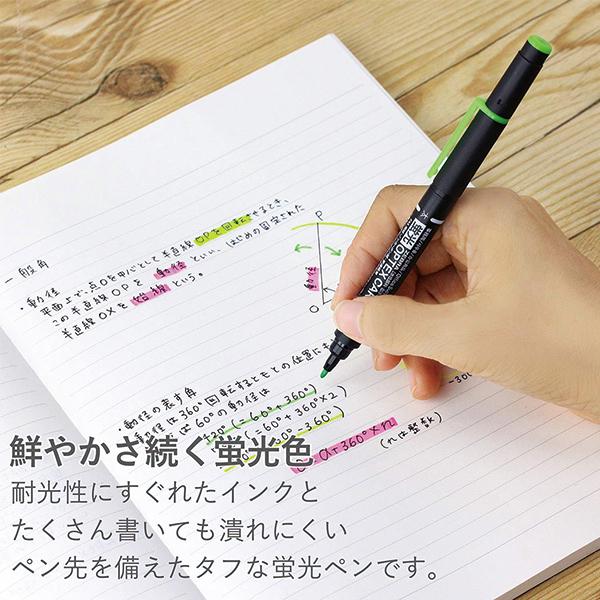 一般角
・動径
平面上で、点Oを中心として半直線OPを回転させるとき、
この半直線OPを動径といい、はじめの固定された
半直線OXを始線という。
P
動径
O
・動径の表す角
動径は360°回転するともとの位置に
は60°の動径は
420°(=60°+360°)
(=60°+360°×2)
60°-360°)
α+360°×n
(nは整数)
-300
太
蛍光 OPTEX CA
鮮やかさ続く蛍光色
耐光性にすぐれたインクと
たくさん書いても潰れにくい
ペン先を備えたタフな蛍光ペンです。